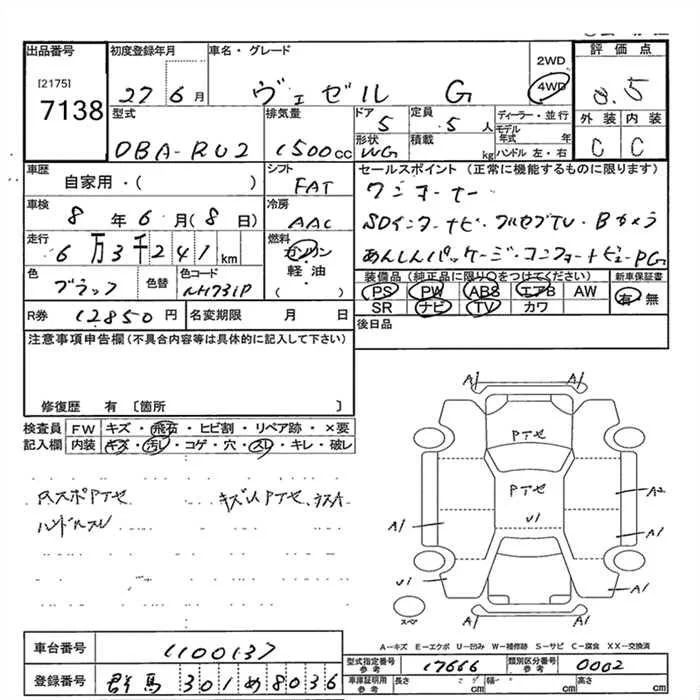 出品番号 初度登録年月 車名・グレード 2WD 評価点
[2175] 4WD
7138 27 6月 ヴェゼル G
型式 排気量 ドア 定員 ディーラー・並行 外装 内装
5 5人 モデル年式 年
DBA-RU2 1500cc 形状 積載 C C
WG kg ハンドル 左・右
車歴 シフト セールスポイント (正常に機能するものに限ります)
自家用・( ) FAT ワンオーナー
車検 冷房 SDインターナビ・フルセグTV・Bカメラ
8年6月(8日) AAC
走行 燃料 あんしんパッケージ・コンフォートビューPG
6万3千241km ガソリン
色 色替 色コード 軽・油 装備品(純正品に限り○をつけてください) 新車保証書
ブラック NH731P ( ) PS PW ABS エアB AW 有 無
SR ナビ TV カワ
R券 12850円 名変期限 月 日 後日品
注意事項申告欄(不具合内容等は具体的に記入して下さい)
修復歴 有 〔箇所 〕
検査員 FW キズ・飛石・ヒビ割・リペア跡・×要
記入欄 内装 キズ・汚レ・コゲ・穴・スレ・キレ・破レ
キズ凹PTセ
ハンドルスレ
A1 A1
PTセ
PTセ
A2
U1
A1 A1
U1 A1
スペア
A-キズ E-エクボ U-凹み W-補修跡 S-サビ C-腐食 XX-交換済
車台番号 1100137
型式指定番号 参考 17666 類別区分番号 参考 0002
登録番号 群馬 301め8036
車庫証明用 参考 長さ cm 幅 cm 高さ cm